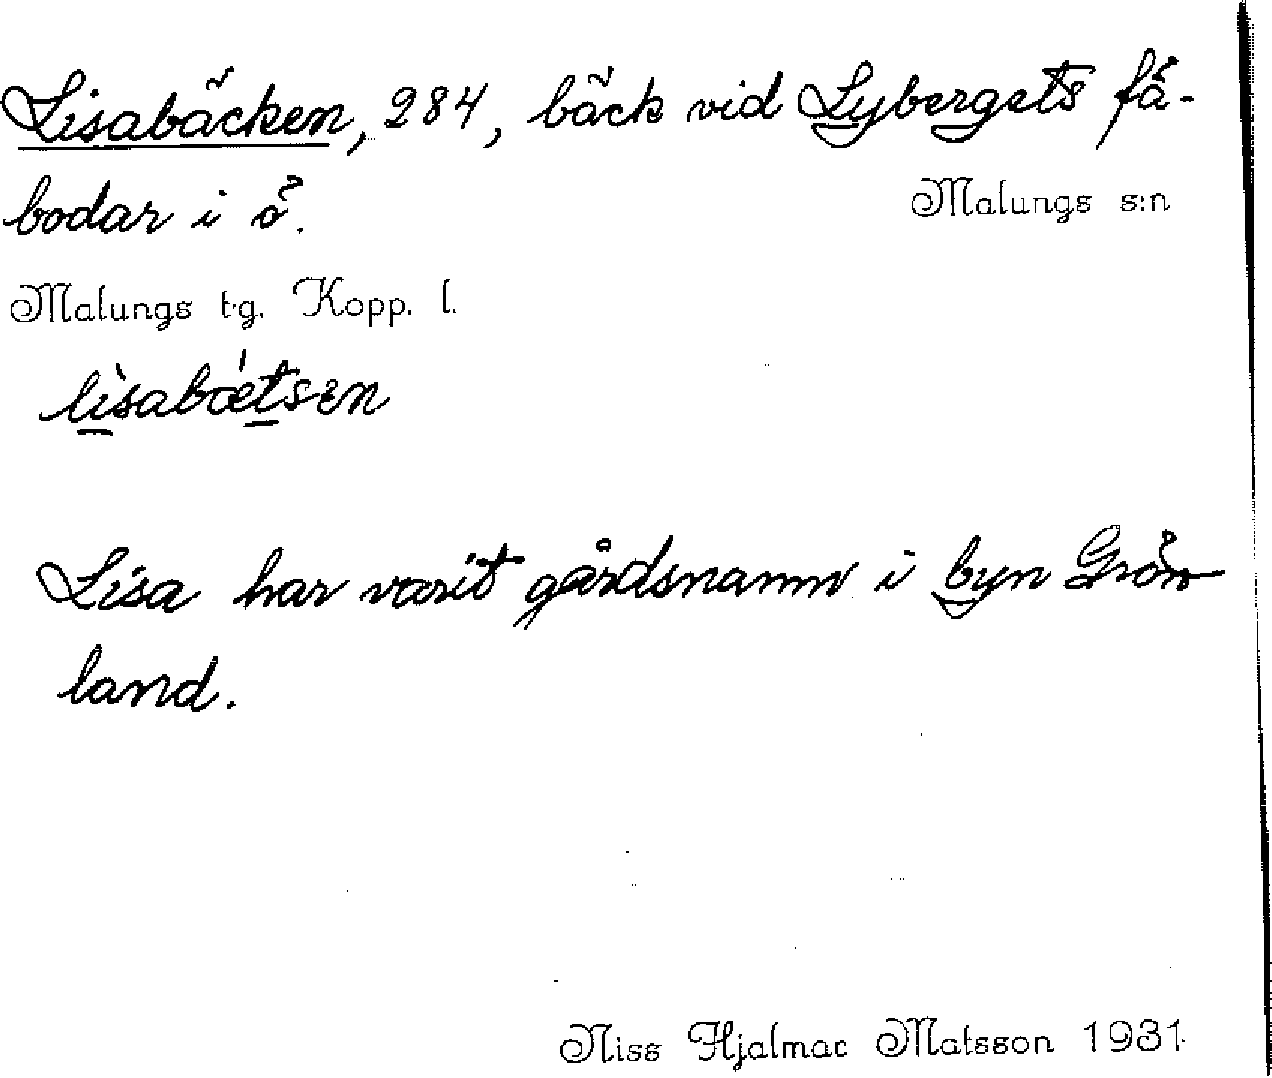 Lisabäcken, 284, bäck vid Lybergets få-
bodar i ö.
Malungs s:n
Malungs t·g. Kopp. l.
lìsabǽtsen
Lisa har varit gårdsnamn i byn Grön
land.
Niss Hjalmar Matsson 1931